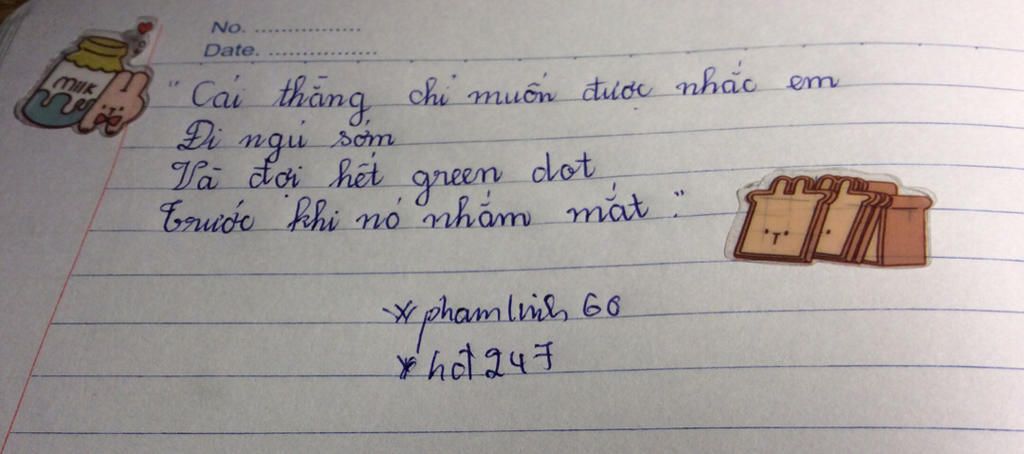 No. ..................
Date. ..................
milk
"Cái thằng chỉ muốn được nhắc em
Đi ngủ sớm
Và đợi hết green dot
Trước khi nó nhắm mắt."
* phamlinh 60
* hot 247